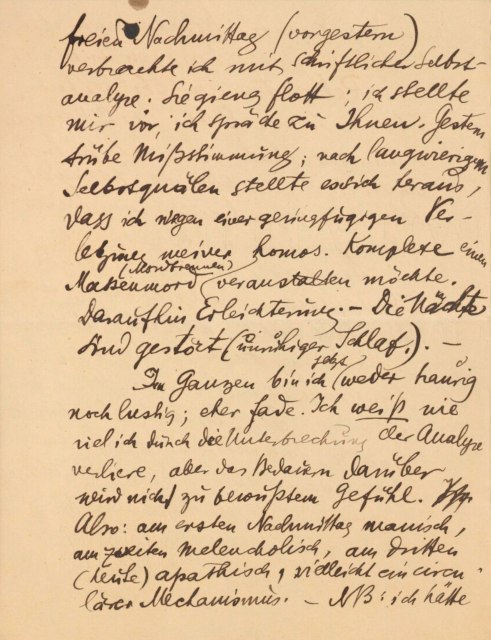 freien Nachmittag (vorgestern)
verbrachte ich mit schriftlicher Selbst-
analyse. Sie gieng flott; ich stellte
mir vor, ich spräche zu Ihnen. Gestern
trübe Mißstimmung; nach langwierigen
Selbstquälen stellte es sich heraus,
dass ich wegen einer geringfügigen Ver-
letzung meiner homos. Komplexe einen
(Mordbrennen)
Massenmord veranstalten möchte.
Daraufhin Erleichterung. – Die Nächte
sind gestört (unruhiger Schlaf.). –
jetzt
Im Ganzen bin ich weder traurig
noch lustig; eher fade. Ich weiß wie
viel ich durch die Unterbrechung der Analyse
verliere, aber das Bedauern darüber
wird nicht zu bewußtem Gefühl.
Also: am ersten Nachmittag manisch,
am zweiten melancholisch, am dritten
(heute) apathisch, vielleicht ein circu-
lärer Mechanismus. – NB: ich hätte